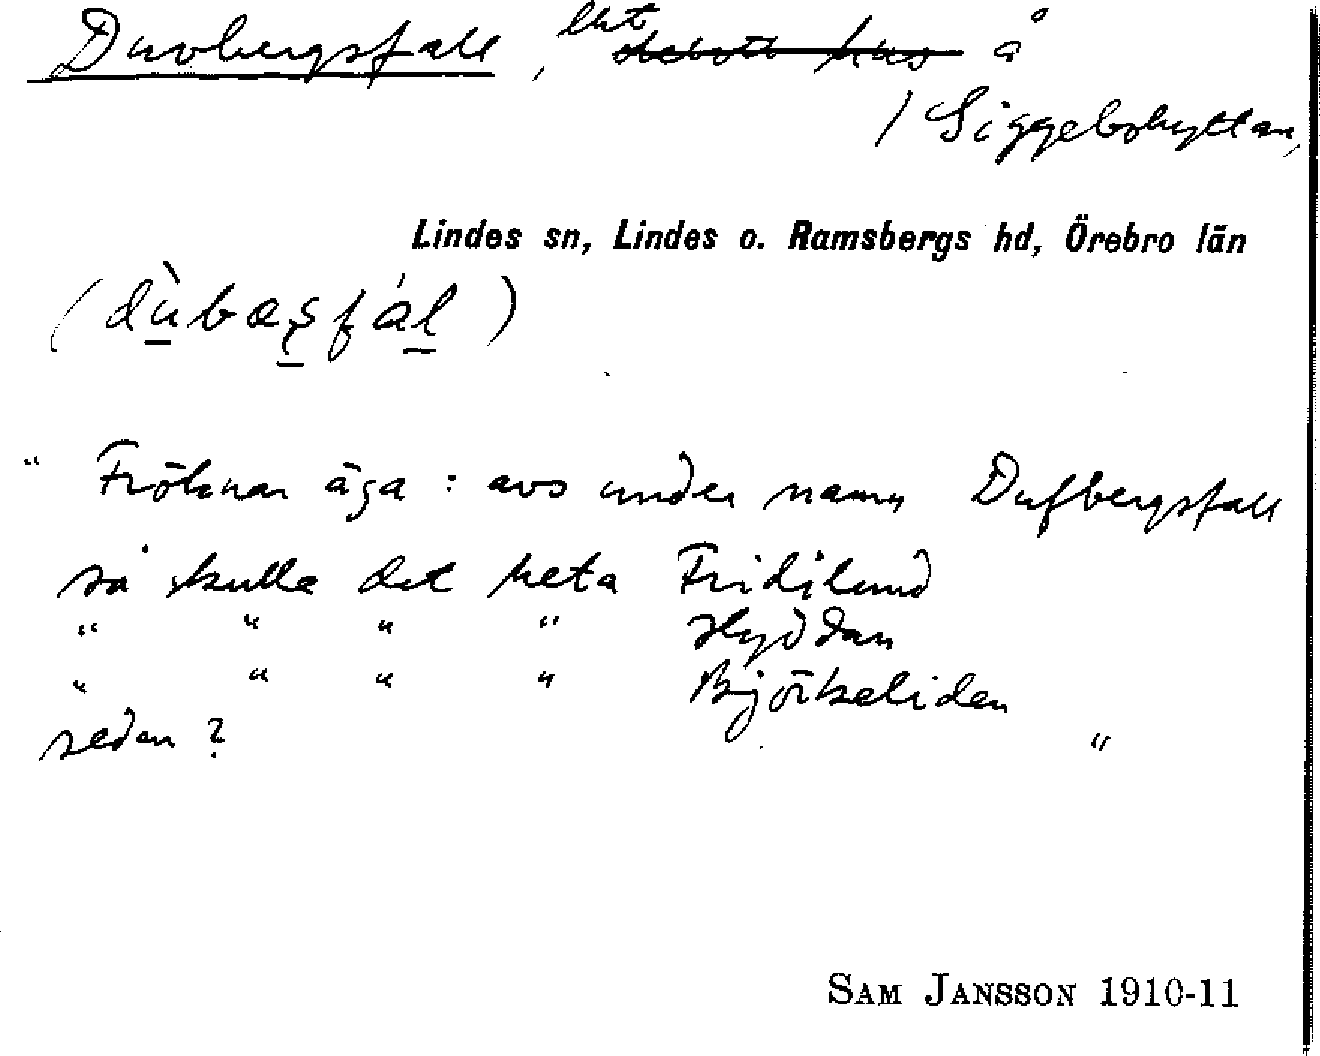 Duvbergsfall, lht å
/ Siggebohyttan,
Lindes sn, Lindes o. Ramsbergs hd, Örebro län
(dùbæșfál)
" Fröknar äga: avs under namn Dufbergsfall
så skulle det heta Fridslund
" " " " Hyddan
" " " " Björkeliden
sedan? "
SAM JANSSON 1910-11